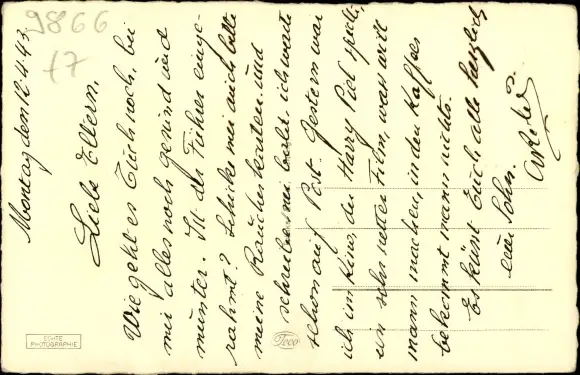 9866
17
Montag den 12.4.43.
Liebe Eltern,
Wie geht es Euch noch, bei
mir alles noch gesund und
munter. Ist der Führer einge-
rahmt? Schicke mir auch bitte
meine Raucherkarten und
schreibe mir bald. ich warte
schon auf Post. Gestern war
ich im Kino, der Harry Piel spielte,
ein sehr netter Film, was will
mann machen, in den Kaffees
bekommt mann nichts.
Es küsst Euch alle herzlich
euer Sohn.
ECHTE
PHOTOGRAPHIE